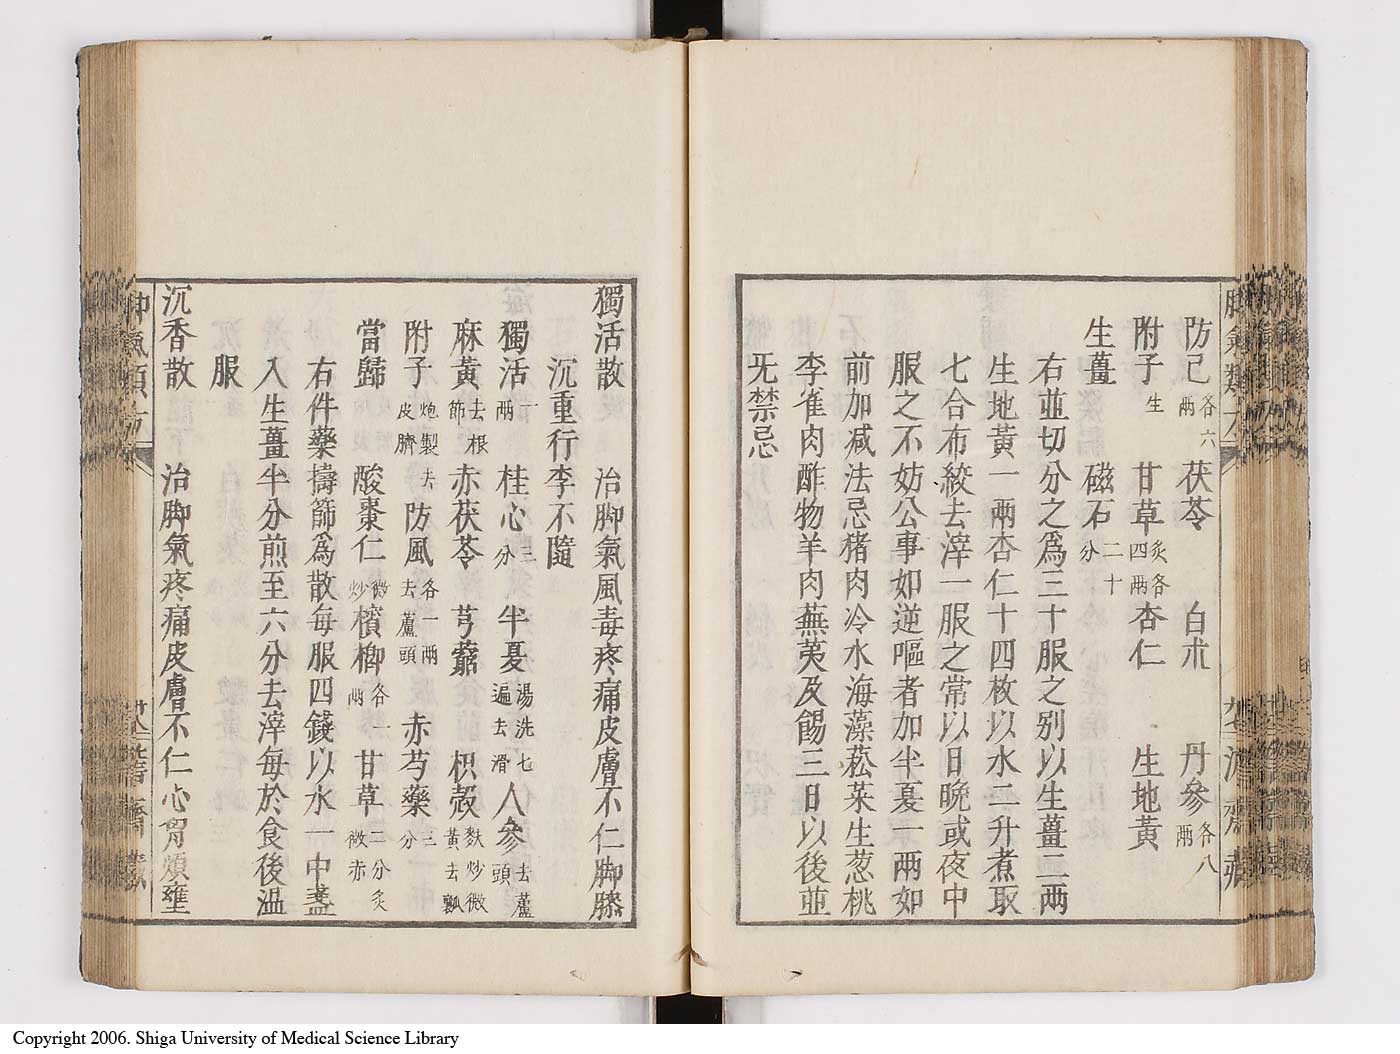 防己各六兩 茯苓 白朮 丹參各八兩
附子生 甘草炙各四兩 杏仁 生地黃
生薑 磁石二十分
右並切分之爲三十服之别以生薑二兩
生地黃一兩杏仁十四枚以水二升煮取
七合布絞去滓一服之常以日晩或夜中
服之不妨公事如逆嘔者加半夏一兩如
前加减法忌猪肉冷水海藻菘菜生葱桃
李雀肉酢物羊肉蕪荑及餳三日以後並
旡禁忌
獨活散 治脚氣風毒疼痛皮膚不仁脚膝
沉重行李不隨
獨活一兩 桂心三分 半夏湯洗七遍去滑 人參去蘆頭
麻黃去根節 赤茯苓 芎藭 枳殼麩炒微黃去瓤
附子炮製去皮臍 防風各一兩去蘆頭 赤芍藥三分
當歸 酸棗仁微炒 檳榔各一兩 甘草二分炙微赤
右件藥擣篩爲散每服四錢以水一中盞
入生薑半分煎至六分去滓每於食後温
服
沉香散 治脚氣疼痛皮膚不仁心胷煩壅
Copyright 2006. Shiga University of Medical Science Library